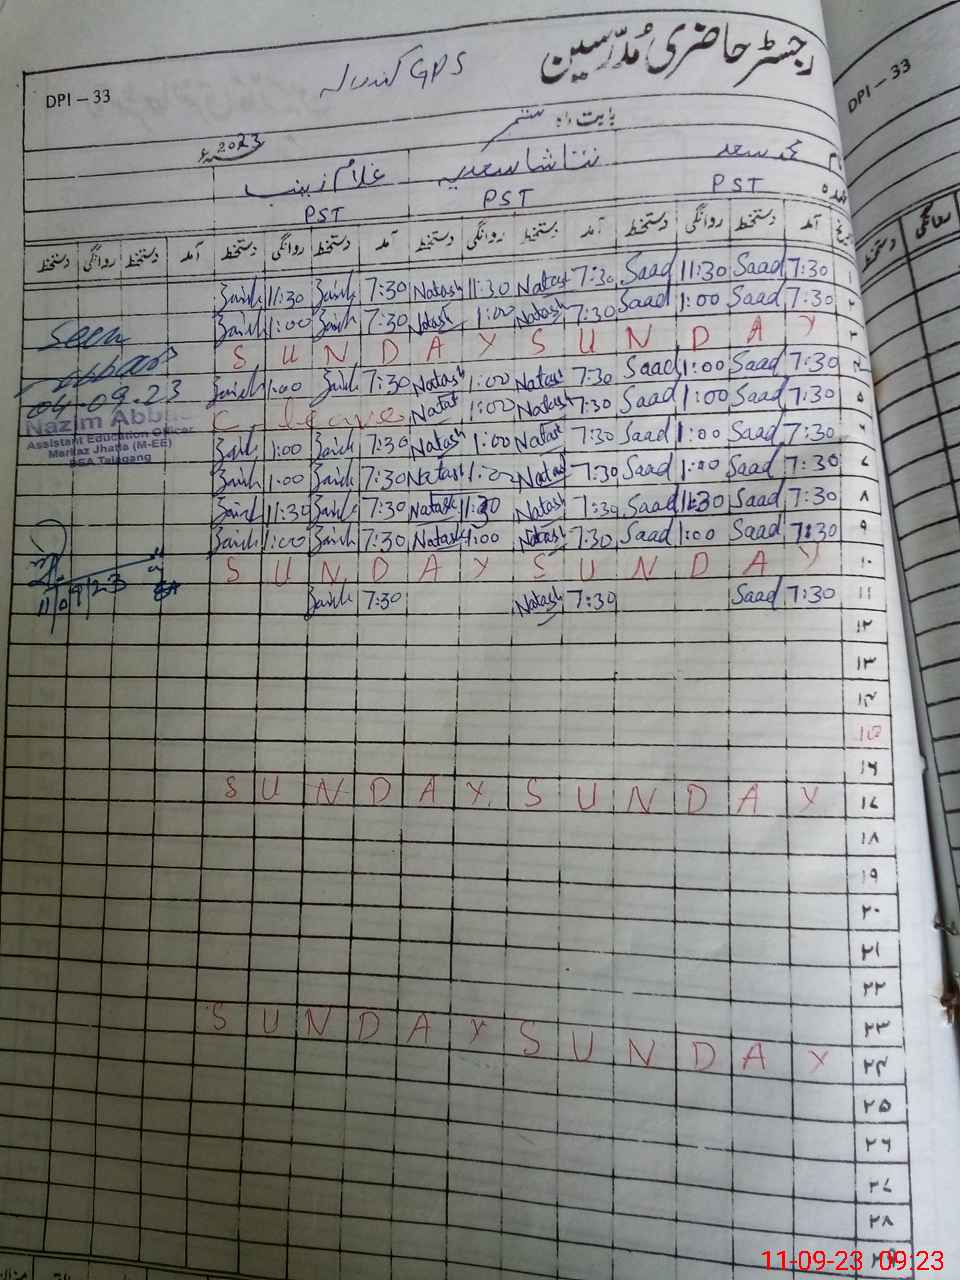 رجسٹر حاضری مُدرّسین
GPS
DPI – 33
DPI – 33
بابت ماہ ستمبر
2023
نام محمد سعد نتاشا سعدیہ غلام زینب
عہدہ PST PST PST
تاریخ آمد دستخط روانگی دستخط آمد دستخط روانگی دستخط آمد دستخط روانگی دستخط آمد دستخط روانگی دستخط
دستخط روانگی
۱ 7:30 Saad 11:30 Saad 7:30 Natash 11:30 Natash 7:30 Zainb 11:30 Zainb
۲ 7:30 Saad 1:00 Saad 7:30 Natash 1:00 Natash 7:30 Zainb 1:00 Zainb
۳ S U N D A Y S U N D A Y
۴ 7:30 Saad 1:00 Saad 7:30 Natash 1:00 Natash 7:30 Zainb 1:00 Zainb
۵ 7:30 Saad 1:00 Saad 7:30 Natash 1:00 Natash C leave
۶ 7:30 Saad 1:00 Saad 7:30 Natash 1:00 Natash 7:30 Zainb 1:00 Zainb
۷ 7:30 Saad 1:00 Saad 7:30 Natash 1:00 Natash 7:30 Zainb 1:00 Zainb
۸ 7:30 Saad 11:30 Saad 7:30 Natash 11:30 Natash 7:30 Zainb 11:30 Zainb
۹ 7:30 Saad 1:00 Saad 7:30 Natash 1:00 Natash 7:30 Zainb 1:00 Zainb
۱۰ S U N D A Y S U N D A Y
۱۱ 7:30 Saad 7:30 Natash 7:30 Zainb
۱۲
۱۳
۱۴
۱۵
۱۶
۱۷ S U N D A Y S U N D A Y
۱۸
۱۹
۲۰
۲۱
۲۲
۲۳
۲۴ S U N D A Y S U N D A Y
۲۵
۲۶
۲۷
۲۸
۲۹
Seen
04-09-23
Nazim Abbas
Assistant Education Officer
Markaz Jhatla (M-EE)
Talagang
11/09/23
11-09-23 09:23